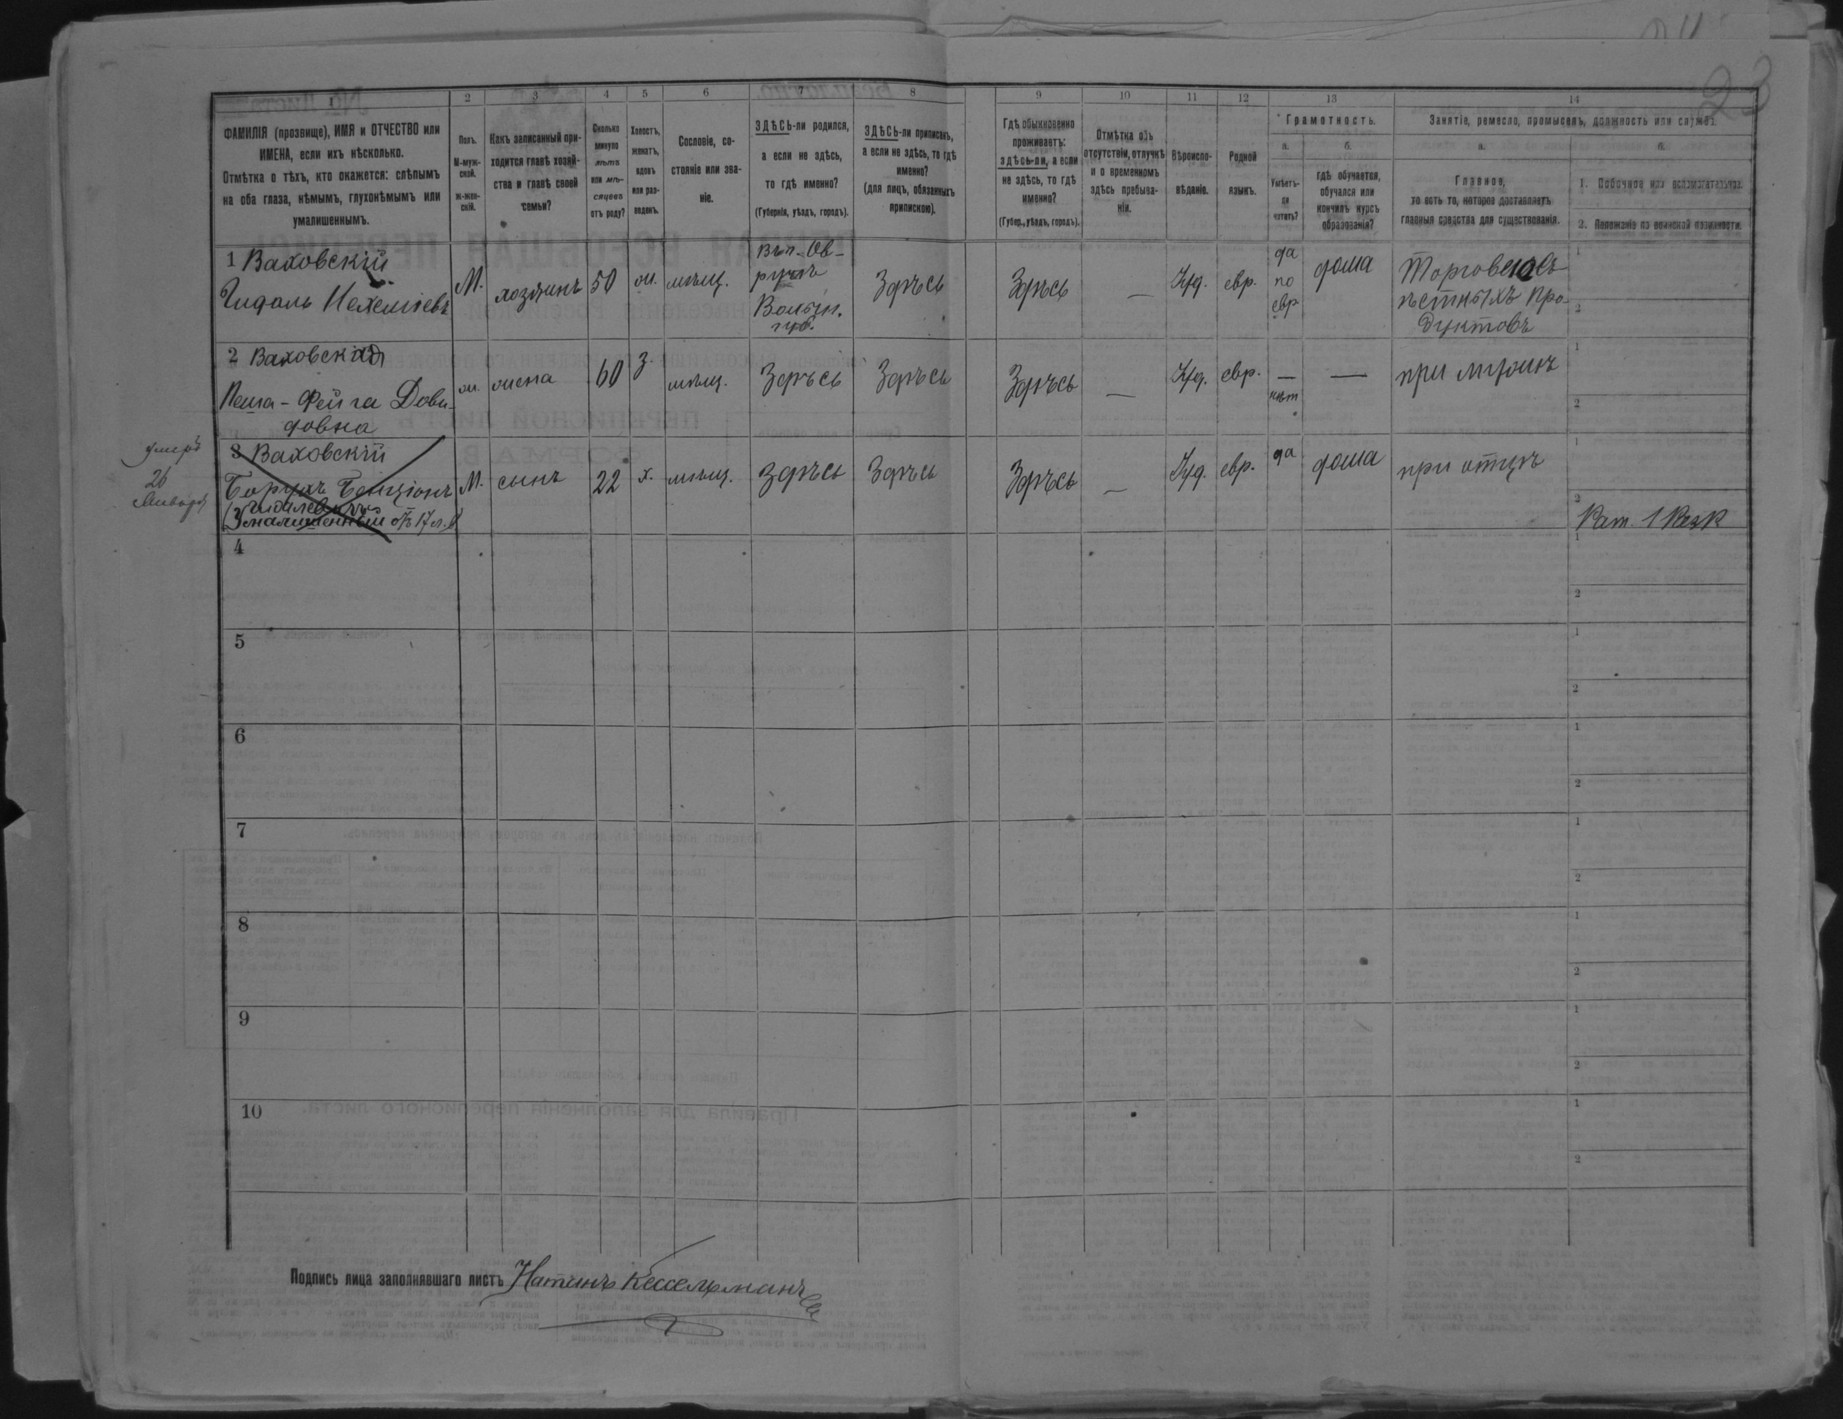 23
1 2 3 4 5 6 7 8 9 10 11 12 13 14
ФАМИЛІЯ (прозвище), ИМЯ и ОТЧЕСТВО или
ИМЕНА, если ихъ нѣсколько.
Отмѣтка о тѣхъ, кто окажется: слѣпымъ
на оба глаза, нѣмымъ, глухонѣмымъ или
умалишеннымъ.
Полъ.
М-муж-
ской.
ж-жен-
скій.
Какъ записанный при-
ходится главѣ хозяй-
ства и главѣ своей
семьи?
Сколько
минуло
лѣтъ
или мѣ-
сяцевъ
отъ роду?
Холостъ,
женатъ,
вдовъ
или раз-
веденъ.
Сословіе, со-
стояніе или зва-
ніе.
ЗДѢСЬ-ли родился,
а если не здѣсь,
то гдѣ именно?
(Губернія, уѣздъ, городъ).
ЗДѢСЬ-ли приписанъ,
а если не здѣсь, то гдѣ
именно?
(для лицъ, обязанныхъ
припискою).
Гдѣ обыкновенно
проживаетъ:
здѣсь-ли, а если
не здѣсь, то гдѣ
именно?
(Губер., уѣздъ, городъ).
Отмѣтка объ
отсутствіи, отлучкѣ
и о временномъ
здѣсь пребыва-
ніи.
Вѣроиспо-
вѣданіе.
Родной
языкъ.
Грамотность.
а.
Умѣетъ-
ли
читать?
б.
гдѣ обучается,
обучался или
кончилъ курсъ
образованія?
Занятіе, ремесло, промыселъ, должность или служба.
а.
Главное,
то есть то, которое доставляетъ
главныя средства для существованія.
б.
1. Побочное или вспомогательное.
2. Положеніе по воинской повинности.
1 Ваховскій
Гидаль Нехеміевъ
М.
хозяинъ
50
ж.
мѣщ.
Въ г. Ов-
ручѣ
Волын.
губ.
Здѣсь
Здѣсь
—
Іуд.
евр.
да
по
евр
дома
Торговецъ
продуктовъ
2 Ваховская
Песя-Фейга Дови-
довна
ж.
жена
60
з.
мѣщ.
Здѣсь
Здѣсь
Здѣсь
—
Іуд.
евр.
—
нѣт
—
при мужѣ
умеръ
26
Января
3 Ваховскій
Борухъ Бенціонъ
Гидалевичъ
(Умалишенный отъ 17 л.)
М.
сынъ
22
х.
мѣщ.
Здѣсь
Здѣсь
Здѣсь
—
Іуд.
евр.
да
дома
при отцѣ
Рат. 1 Разр
4
5
6
7
8
9
10
Подпись лица заполнявшаго листъ Натанъ Кесельманъ